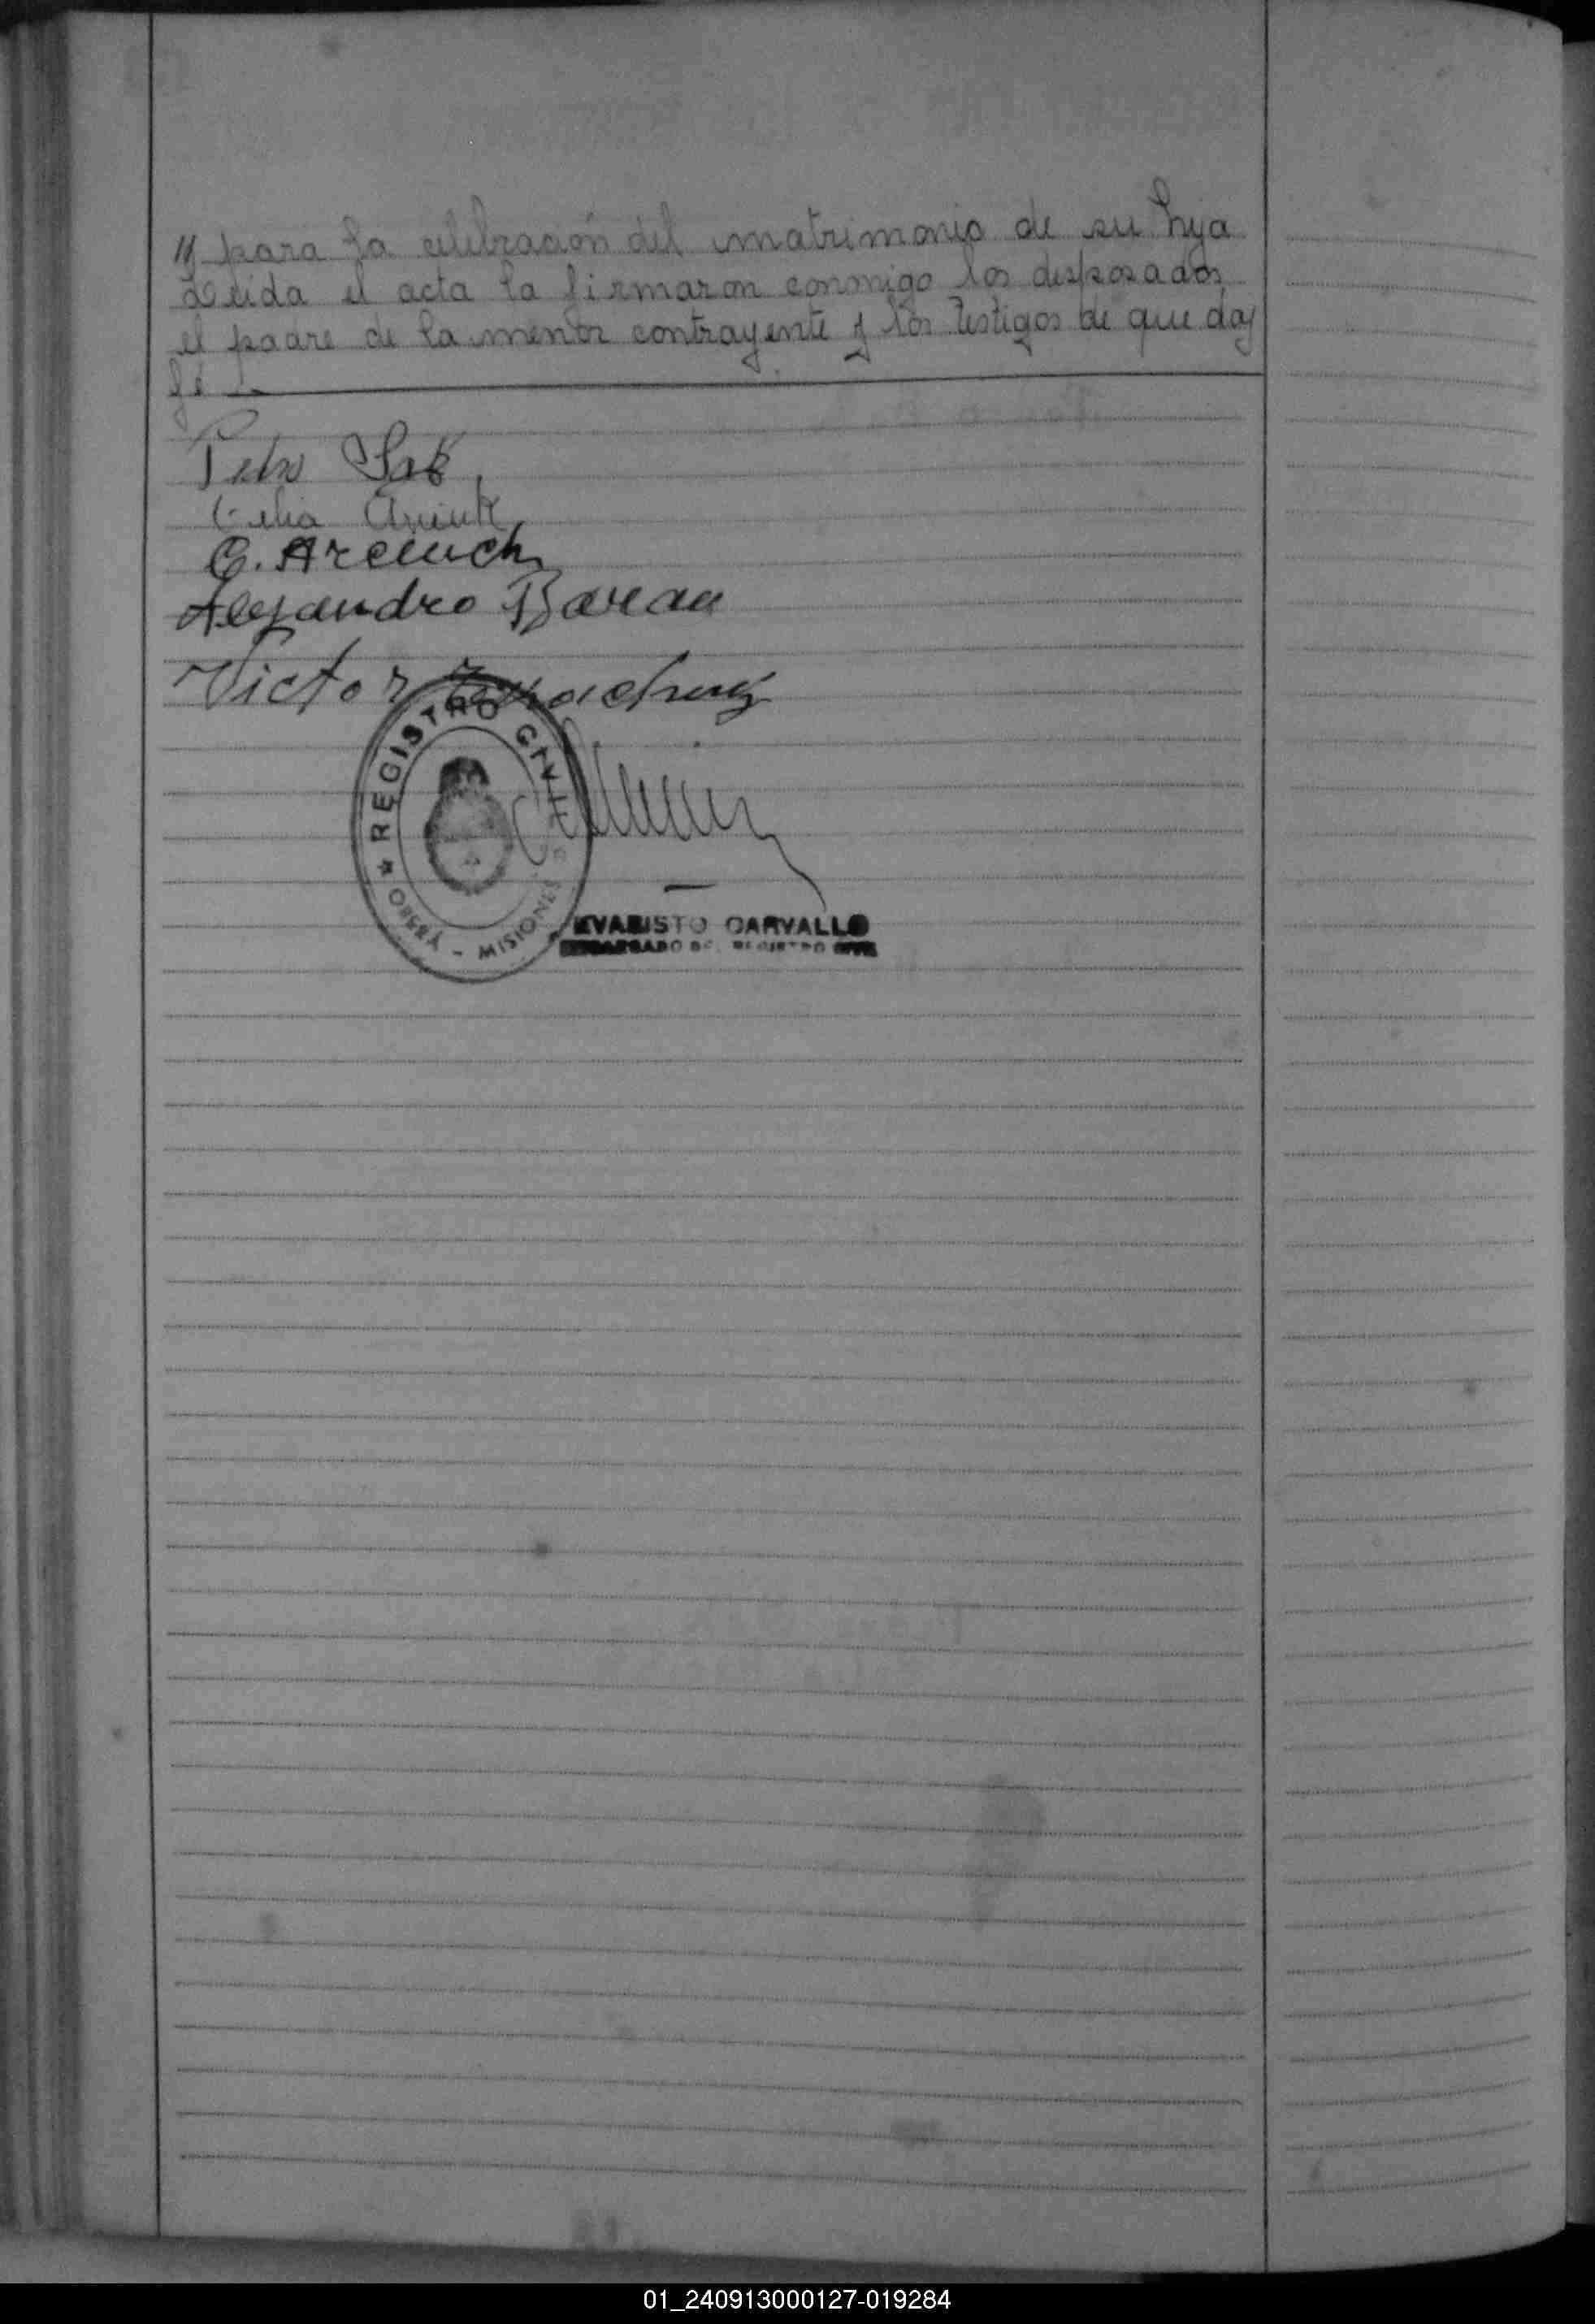 para la celebración del matrimonio de su hija
Leida el acta la firmaron conmigo los desposados,
el padre de la menor contrayente y los testigos de que doy
fé
Pedro
Celia
Alejandro
Victor
REGISTRO CIVIL
OBERA - MISIONES
EVARISTO CARVALLO
ENCARGADO DEL REGISTRO CIVIL
01_240913000127-019284